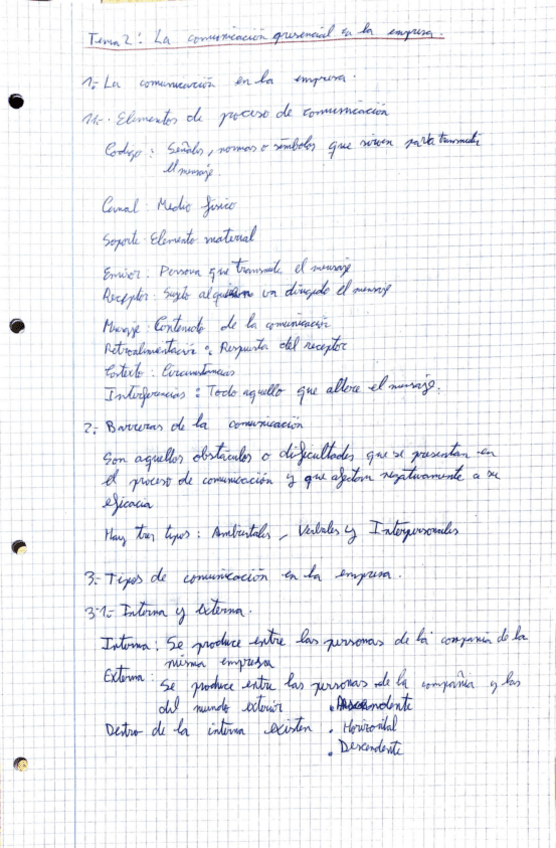 Tema 2: La comunicación presencial en la empresa.
1.- La comunicación en la empresa.
1.1.- Elementos de proceso de comunicación
Codigo: Señales, normas o símbolos que sirven para transmitir
el mensaje.
Canal: Medio físico
Soporte: Elemento material
Emisor: Persona que transmite el mensaje
Receptor: Sujeto al quien va dirigido el mensaje
Mensaje: Contenido de la comunicación
Retroalimentación: Respuesta del receptor
Contexto: Circunstancias
Interferencias: Todo aquello que altere el mensaje.
2.- Barreras de la comunicación
Son aquellos obstáculos o dificultades que se presentan en
el proceso de comunicación y que afectan negativamente a su
eficacia
Hay tres tipos: Ambientales, Verbales y Interpersonales
3.- Tipos de comunicación en la empresa.
3.1.- Interna y externa.
Interna: Se produce entre las personas de la compañia de la
misma empresa
Externa: Se produce entre las personas de la compañia y las
del mundo exterior
Dentro de la interna existen
• Ascendente
• Horizontal
• Descendente